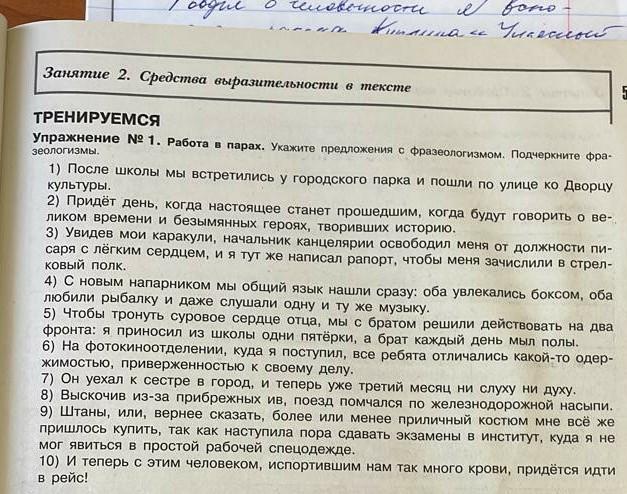 о человечности я
Занятие 2. Средства выразительности в тексте
5
ТРЕНИРУЕМСЯ
Упражнение № 1. Работа в парах. Укажите предложения с фразеологизмом. Подчеркните фра-
зеологизмы.
1) После школы мы встретились у городского парка и пошли по улице ко Дворцу
культуры.
2) Придёт день, когда настоящее станет прошедшим, когда будут говорить о ве-
ликом времени и безымянных героях, творивших историю.
3) Увидев мои каракули, начальник канцелярии освободил меня от должности пи-
саря с лёгким сердцем, и я тут же написал рапорт, чтобы меня зачислили в стрел-
ковый полк.
4) С новым напарником мы общий язык нашли сразу: оба увлекались боксом, оба
любили рыбалку и даже слушали одну и ту же музыку.
5) Чтобы тронуть суровое сердце отца, мы с братом решили действовать на два
фронта: я приносил из школы одни пятёрки, а брат каждый день мыл полы.
6) На фотокиноотделении, куда я поступил, все ребята отличались какой-то одер-
жимостью, приверженностью к своему делу.
7) Он уехал к сестре в город, и теперь уже третий месяц ни слуху ни духу.
8) Выскочив из-за прибрежных ив, поезд помчался по железнодорожной насыпи.
9) Штаны, или, вернее сказать, более или менее приличный костюм мне всё же
пришлось купить, так как наступила пора сдавать экзамены в институт, куда я не
мог явиться в простой рабочей спецодежде.
10) И теперь с этим человеком, испортившим нам так много крови, придётся идти
в рейс!